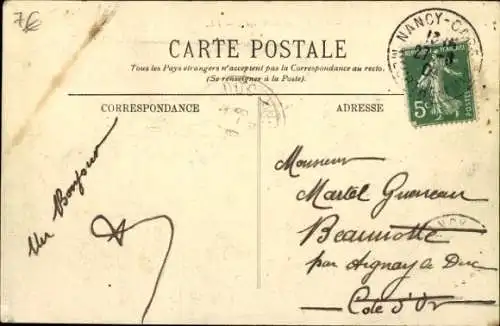 7€
CARTE POSTALE
Tous les Pays étrangers n'acceptent pas la Correspondance au recto.
(Se renseigner à la Poste).
CORRESPONDANCE
ADRESSE
NANCY
5
Un Bonjour
Monsieur
Martel Gueneau
Beaunotte
par Aignay le Duc
Côte d'Or